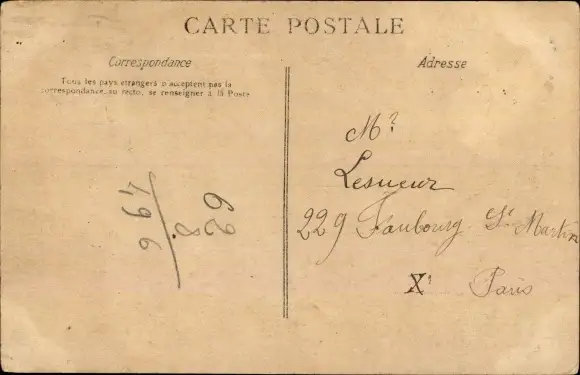 CARTE POSTALE
Correspondance
Tous les pays étrangers n'acceptent pas la
correspondance au recto, se renseigner à la Poste
Adresse
Mr
Lesueur
229 Faubourg St Martin
X Paris